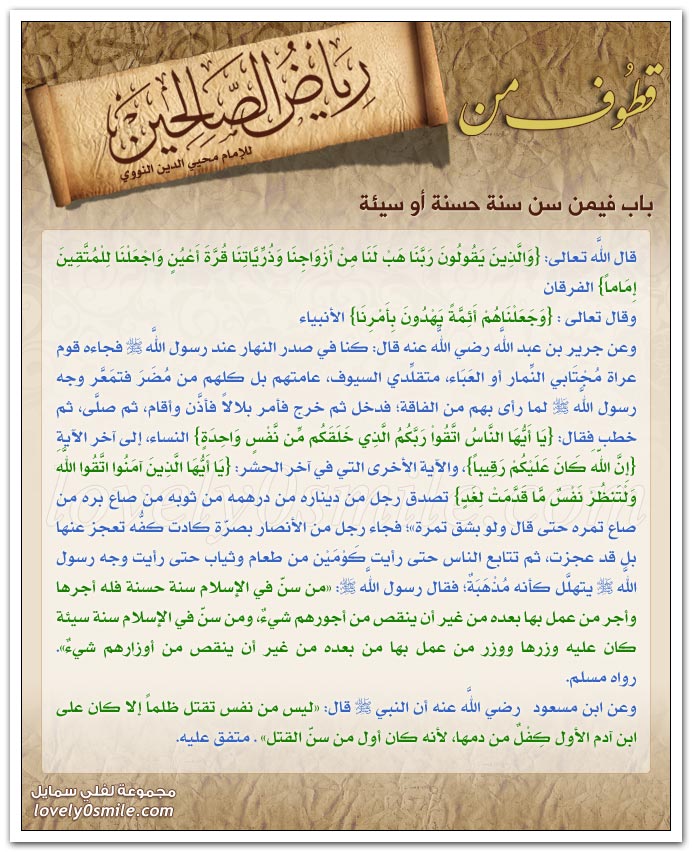 قطوف من
رياض الصالحين
للإمام محيي الدين النووي
باب فيمن سن سنة حسنة أو سيئة
قال اللَّه تعالى: {وَالَّذِينَ يَقُولُونَ رَبَّنَا هَبْ لَنَا مِنْ أَزْوَاجِنَا وَذُرِّيَّاتِنَا قُرَّةَ أَعْيُنٍ وَاجْعَلْنَا لِلْمُتَّقِينَ
إِمَاماً} الفرقان
وقال تعالى : {وَجَعَلْنَاهُمْ أَئِمَّةً يَهْدُونَ بِأَمْرِنَا} الأنبياء
وعن جرير بن عبد اللَّه رضي اللَّه عنه قال: كنا في صدر النهار عند رسول اللَّه ﷺ فجاءه قوم
عراة مُجْتابي النِّمار أو العَبَاء، متقلِّدي السيوف، عامتهم بل كلهم من مُضَرَ فتمَعَّر وجه
رسول اللَّه ﷺ لما رأى بهم من الفاقة؛ فدخل ثم خرج فأمر بلالاً فأذَّن وأقام، ثم صلَّى، ثم
خطب فقال: {يَا أَيُّهَا النَّاسُ اتَّقُواْ رَبَّكُمُ الَّذِي خَلَقَكُم مِّن نَّفْسٍ وَاحِدَةٍ} النساء، إلى آخر الآية
{إِنَّ اللَّهَ كَانَ عَلَيْكُمْ رَقِيباً}، والآية الأخرى التي في آخر الحشر: {يَا أَيُّهَا الَّذِينَ آمَنُوا اتَّقُوا اللَّهَ
وَلْتَنظُرْ نَفْسٌ مَّا قَدَّمَتْ لِغَدٍ} تصدق رجل من ديناره من درهمه من ثوبه من صاع بره من
صاع تمره حتى قال ولو بشق تمرة»؛ فجاء رجل من الأنصار بصرّة كادت كفُّه تعجز عنها
بل قد عجزت، ثم تتابع الناس حتى رأيت كَوْمَيْن من طعام وثياب حتى رأيت وجه رسول
اللَّه ﷺ يتهلَّل كأنه مُذْهَبَةٌ؛ فقال رسول اللَّه ﷺ: «من سنّ في الإسلام سنة حسنة فله أجرها
وأجر من عمل بها بعده من غير أن ينقص من أجورهم شيءٌ، ومن سنّ في الإسلام سنة سيئة
كان عليه وزرها ووزر من عمل بها من بعده من غير أن ينقص من أوزارهم شيءٌ».
رواه مسلم.
وعن ابن مسعود رضي اللَّه عنه أن النبي ﷺ قال: «ليس من نفس تقتل ظلماً إلا كان على
ابن آدم الأول كِفْلٌ من دمها، لأنه كان أول من سنّ القتل» . متفق عليه.
مجموعة لفلي سمايل
lovely0smile.com